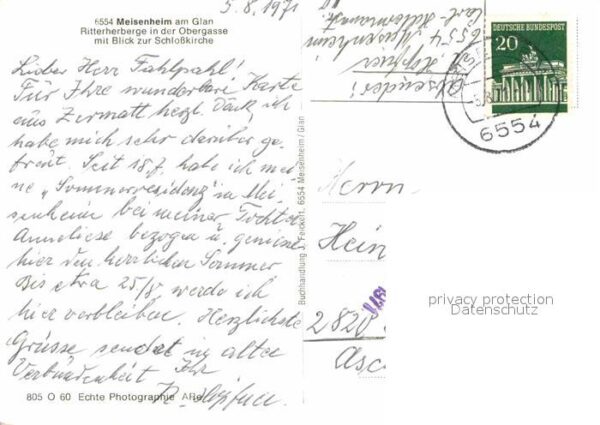 5.8.1971
6554 Meisenheim am Glan
Ritterherberge in der Obergasse
mit Blick zur Schloßkirche
Lieber Herr Fahlpahl!
Für Ihre wunderbare Karte
aus Zermatt herzl. Dank, ich
habe mich sehr darüber ge-
freut. Seit 18.7. habe ich mei-
ne „Sommerresidenz" in Mei-
senheim bei meiner Tochter
Anneliese bezogen u. geniesse
hier den herrlichen Sommer
Bis etwa 25/8 werde ich
hier verbleiben. Herzlichste
Grüsse sendet in alter
Verbundenheit Ihr
805 O 60 Echte Photographie
Buchhandlung J. Feickert, 6554 Meisenheim/Glan
Absender:
6554 Meisenheim
DEUTSCHE BUNDESPOST
20
6554
Herrn
Hein
2820
privacy protection
Datenschutz